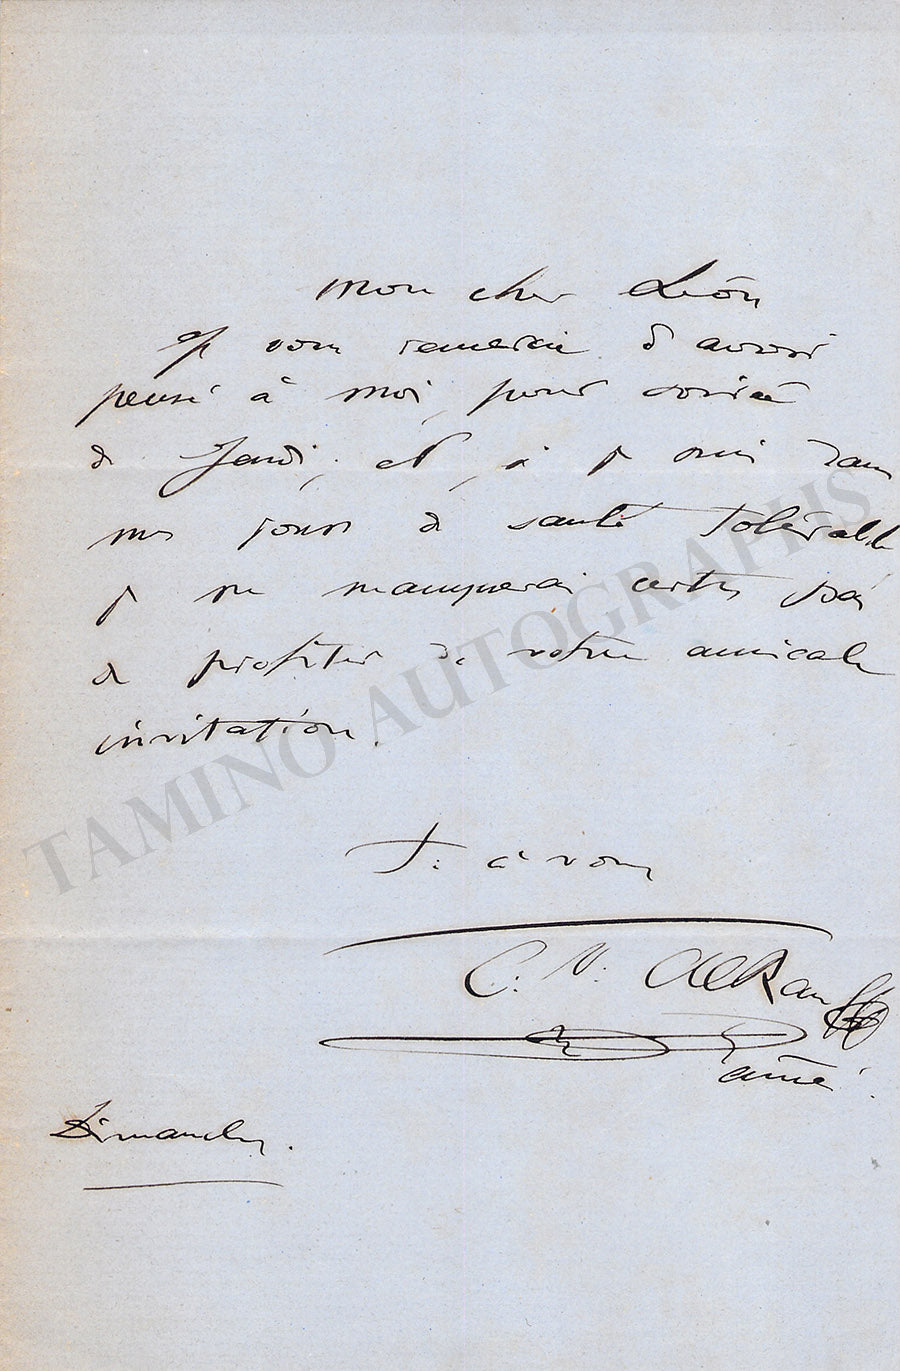 Mon cher Léon
Je vous remercie d'avoir
pensé à moi, pour soirée
de Jeudi; et, si je suis dans
mes jours de santé tolérable
je ne manquerai certes pas
de profiter de votre amicale
invitation.
T. à vous
C. V. Alkan
aîné.
Dimanche.
TAMINO AUTOGRAPHS